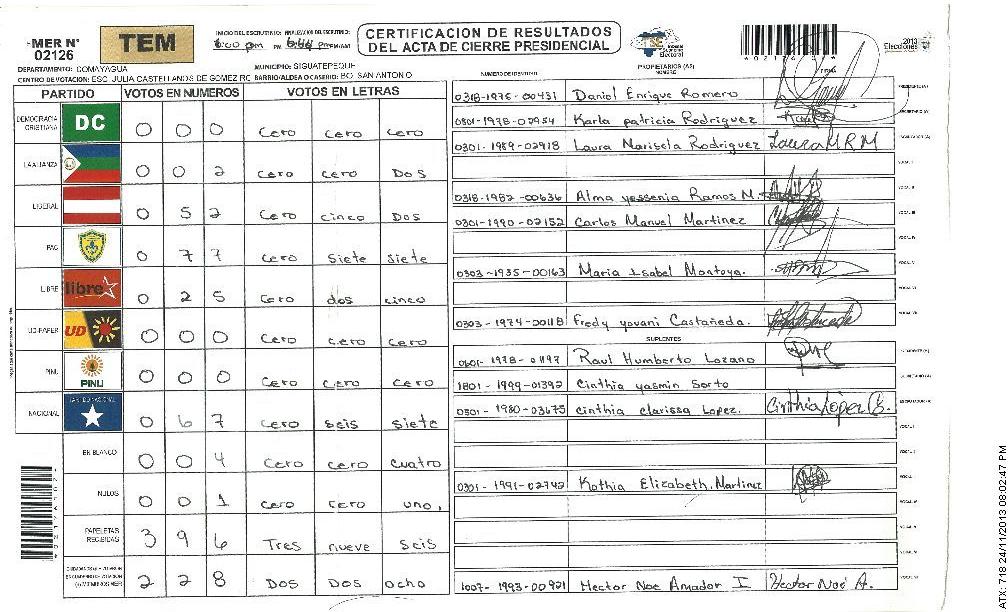 MER N° 02126
TEM
INICIO DEL ESCRUTINIO: FINALIZACION DEL ESCRUTINIO:
6:00 pm
CERTIFICACION DE RESULTADOS
DEL ACTA DE CIERRE PRESIDENCIAL
TSE Tribunal Supremo Electoral
2013 Elecciones
DEPARTAMENTO: COMAYAGUA MUNICIPIO: SIGUATEPEQUE
CENTRO DE VOTACION: ESC. JULIA CASTELLANOS DE GOMEZ RO BARRIO/ALDEA O CASERIO: BO. SAN ANTONIO
NUMERO DE IDENTIDAD PROPIETARIOS (AS) NOMBRE FIRMA
PARTIDO VOTOS EN NUMEROS VOTOS EN LETRAS
DEMOCRACIA CRISTIANA DC 0 0 0 cero cero cero
LA ALIANZA 0 0 2 cero cero Dos
LIBERAL 0 5 2 cero cinco Dos
PAC 0 7 7 cero siete siete
LIBRE libre 0 2 5 cero dos cinco
UD-FAPER UD 0 0 0 cero cero cero
PINU PINU 0 0 0 cero cero cero
NACIONAL 0 6 7 cero seis siete
EN BLANCO 0 0 4 cero cero cuatro
NULOS 0 0 1 cero cero uno,
PAPELETAS RECIBIDAS 3 9 6 Tres nueve seis
2 2 8 Dos Dos ocho
0318-1975-00431 Daniel Enrique Romero
0801-1978-02954 Karla patricia Rodriguez
0301-1989-02918 Laura Marisela Rodriguez Laura M R M
0318-1982-00636 Alma yessenia Ramos M.
0301-1990-02152 Carlos Manuel Martinez
0303-1935-00163 Maria Isabel Montoya.
0303-1974-00118 Fredy yovani Castañeda.
SUPLENTES
0601-1978-01197 Raul Humberto Lozano
1801-1999-01392 Cinthia yasmin Sorto
0501-1980-03675 cinthia clarissa Lopez. Cinthia Lopez
0301-1991-02742 Kathia Elizabeth. Martinez
1007-1993-00921 Hector Noe Amador I Hector Noé A.
ATX: 718 24/11/2013 08:02:47 PM